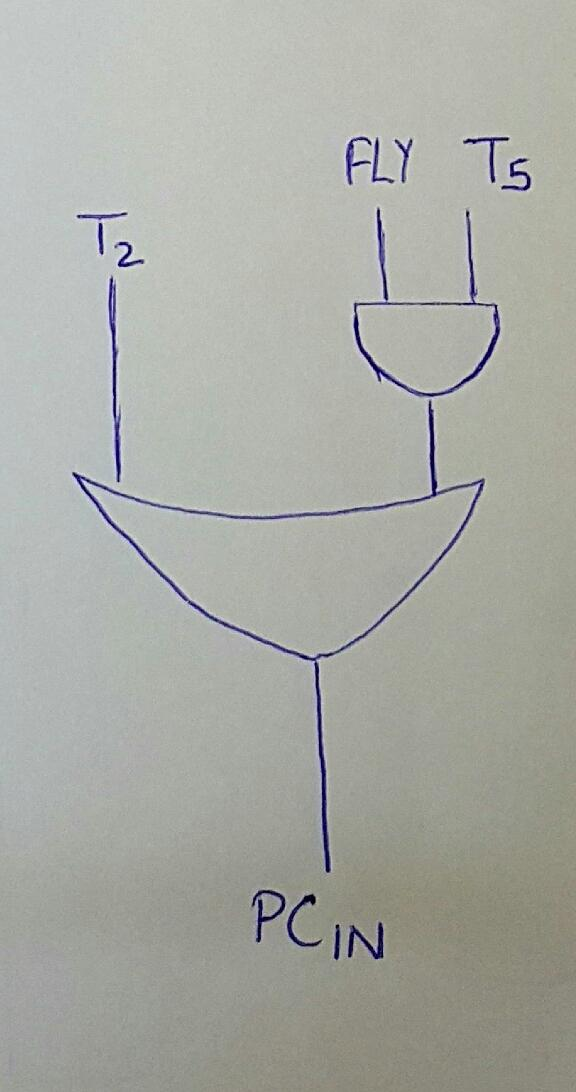 FLY T5
T2
PCIN